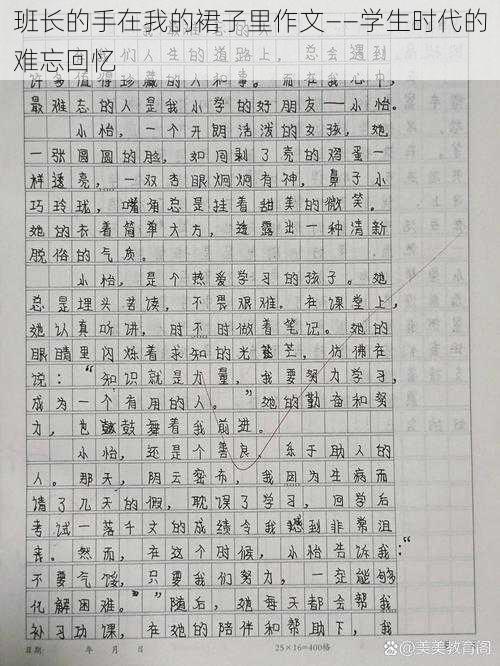 班长的手在我的裙子里作文——学生时代的
难忘回忆
们人生的道路上，总会遇到
许多值得珍藏的人和事。而在我心中，
最难忘的人是我小学的好朋友——小怡。
小怡，一个开朗活泼的女孩，她
一张圆圆的脸，如同剥了壳的鸡蛋一
样透亮，一双杏眼炯炯有神，鼻子小
巧玲珑，嘴角总是挂着甜美的微笑。
她的衣着简单大方，透露出一种清新
脱俗的气质。
小怡，是个热爱学习的孩子。她
总是埋头苦读，不畏艰难。在课堂上，
她认真听讲，时不时做着笔记。她的
眼睛里闪烁着求知的光芒，仿佛在
说：“知识就是力量，我要努力学习，
成为一个有用的人。”她的勤奋和努
力，也鼓舞着我前进。
小怡，还是个善良、乐于助人的
人。那天，阴云密布，我因为生病而
请了几天的假，耽误了学习，回学后
考试一落千丈的成绩令我感到非常沮
丧。然而，在这个时候，小怡告诉我：“
不要气馁，只要我们努力，一定能够
化解困难。”随后，她每天都会帮我
补习功课，在她的陪伴和帮助下，我
日期： 年 月 日 25×16=400格
@美美教育阁